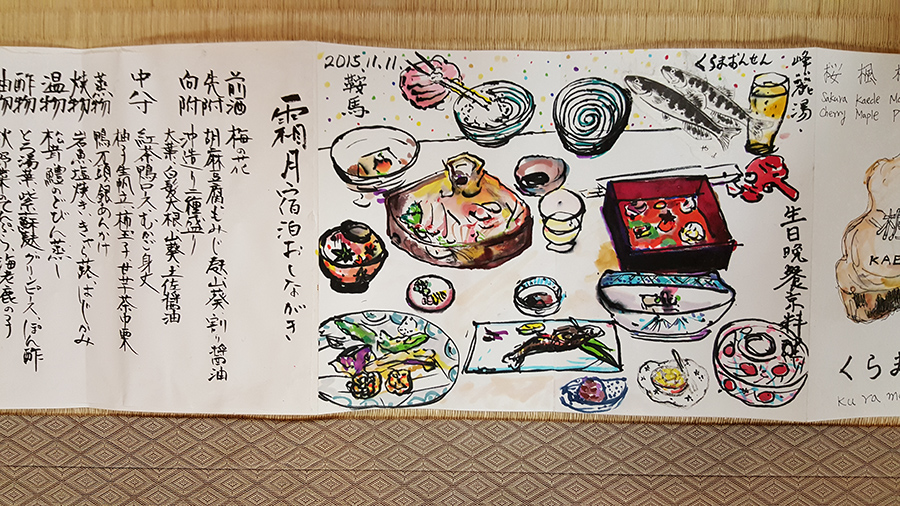 2015.11.11.
鞍馬
くらまおんせん
峰麓湯
生日晚餐京料理
霜月宿泊おしながき
前酒
先附 胡麻豆腐もみじ麩山葵割り醤油
向附 沖造り二種盛り
大葉白髪大根山葵土佐醤油
紅茶鴨ロース
蒸物 鴨万頭銀あんかけ
焼物 岩魚塩焼き はじかみ
温物 松茸鱧のどびん蒸し
酢物 とろ湯葉紫蘇麩グリンピースぽん酢
油物 秋野菜天ぷら海老
桜 楓
Sakura Kaede
Cherry Maple
KAE
くらま
kuram